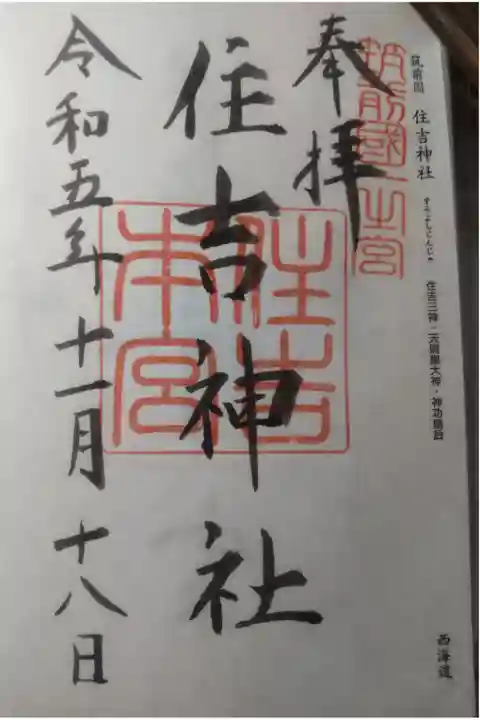 筑前国 住吉神社 すみよしじんじゃ 住吉三神・天照皇大神・神功皇后
西海道
筑前國一之宮
奉拝
住吉神社
住吉本宮
令和五年十一月十八日